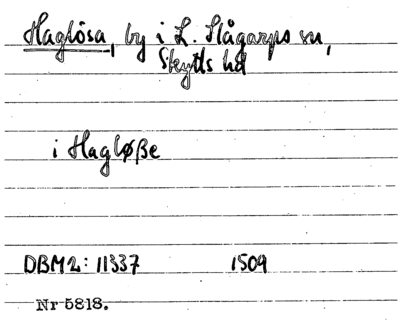 Haglösa, by i L. Slågarps sn,
Skytts hd
i Hagløße
DBM2: 11337 1509
Nr 5818.